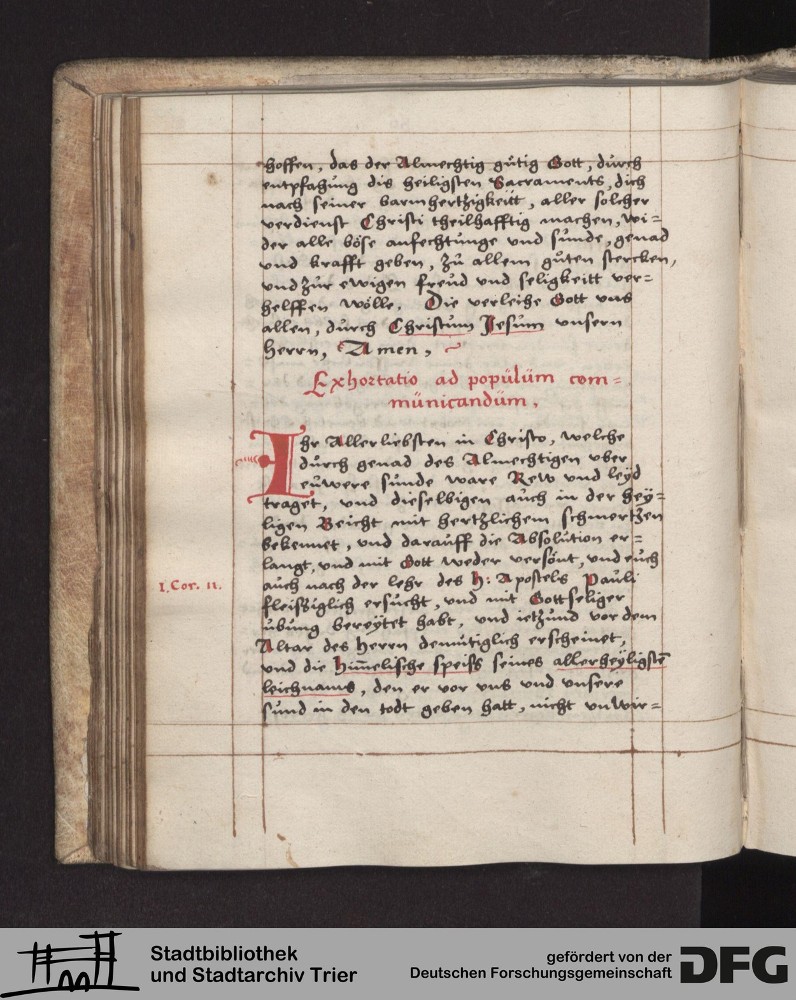 hoffen, das der Almechtig gütig Gott, durch
entpfahung dis heiligsten Sacraments, dich
nach seiner barmhertzigkeitt, aller solcher
verdienst Christi theilhafftig machen, wi=
der alle böse anfechtunge vnd sünde, genad
vnd krafft geben, zü allem güten stercken,
vnd zür ewigen freüd vnd seligkeitt ver=
helffen wölle. Die verleihe Gott vns
allen, dürch Christum Jesum vnsern
Herrn, Amen,
Exhortatio ad popülüm com=
münicandüm.
Ihr Allerliebsten in Christo, welche
dürch genad des Almechtigen vber
eüwere sünde ware Rew vnd leyd
traget, vnd dieselbigen aüch in der hey=
ligen Beicht mit hertzlichem schmertzen
bekennet, vnd daraüff die Absolütion er=
langt, vnd mit Gott weder versönt, vnd eüch
aüch nach der lehr des H: Apostels Paüli
fleissiglich ersücht, vnd mit Gottseliger
übüng bereytet habt, vnd ietzünd vor dem
Altar des Herrn demütiglich erscheinet,
vnd die him̄elische speiss seines allerheyligstē
leichnams, den er vor vns vnd vnsere
sünd in den todt geben hatt, nicht vnwir=
1. Cor. 11.
Stadtbibliothek
und Stadtarchiv Trier
gefördert von der
Deutschen Forschungsgemeinschaft
DFG